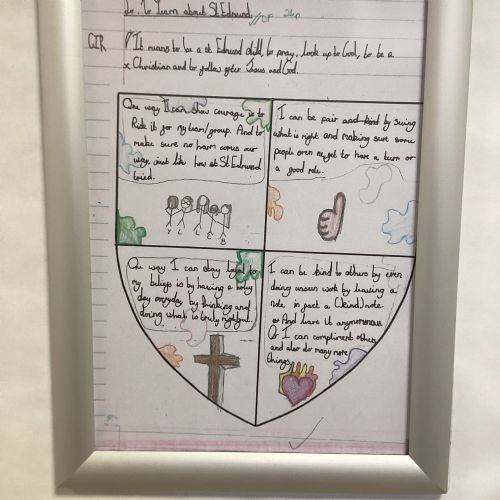 Lo: To learn about St Edmund.
It means to be a st Edmund child, to pray, look up to God, to be a
Christian and to follow after Jesus and God.
One way I can show courage is to
Risk it for my team/group. And to
make sure no harm comes our
way, just like how St Edmund
tried.
Y L L E B
I can be fair and kind by seeing
what is right and making sure some
people even get to have a turn or
a good role.
One way I can stay loyal to
my beliefs is by having a holy
day everyday by thinking and
doing what is truly right.
I can be kind to others by even
doing unseen work by leaving a
note in fact a (kind) note
And leave it anymonous
Or I can compliment others
and also do many more
things.